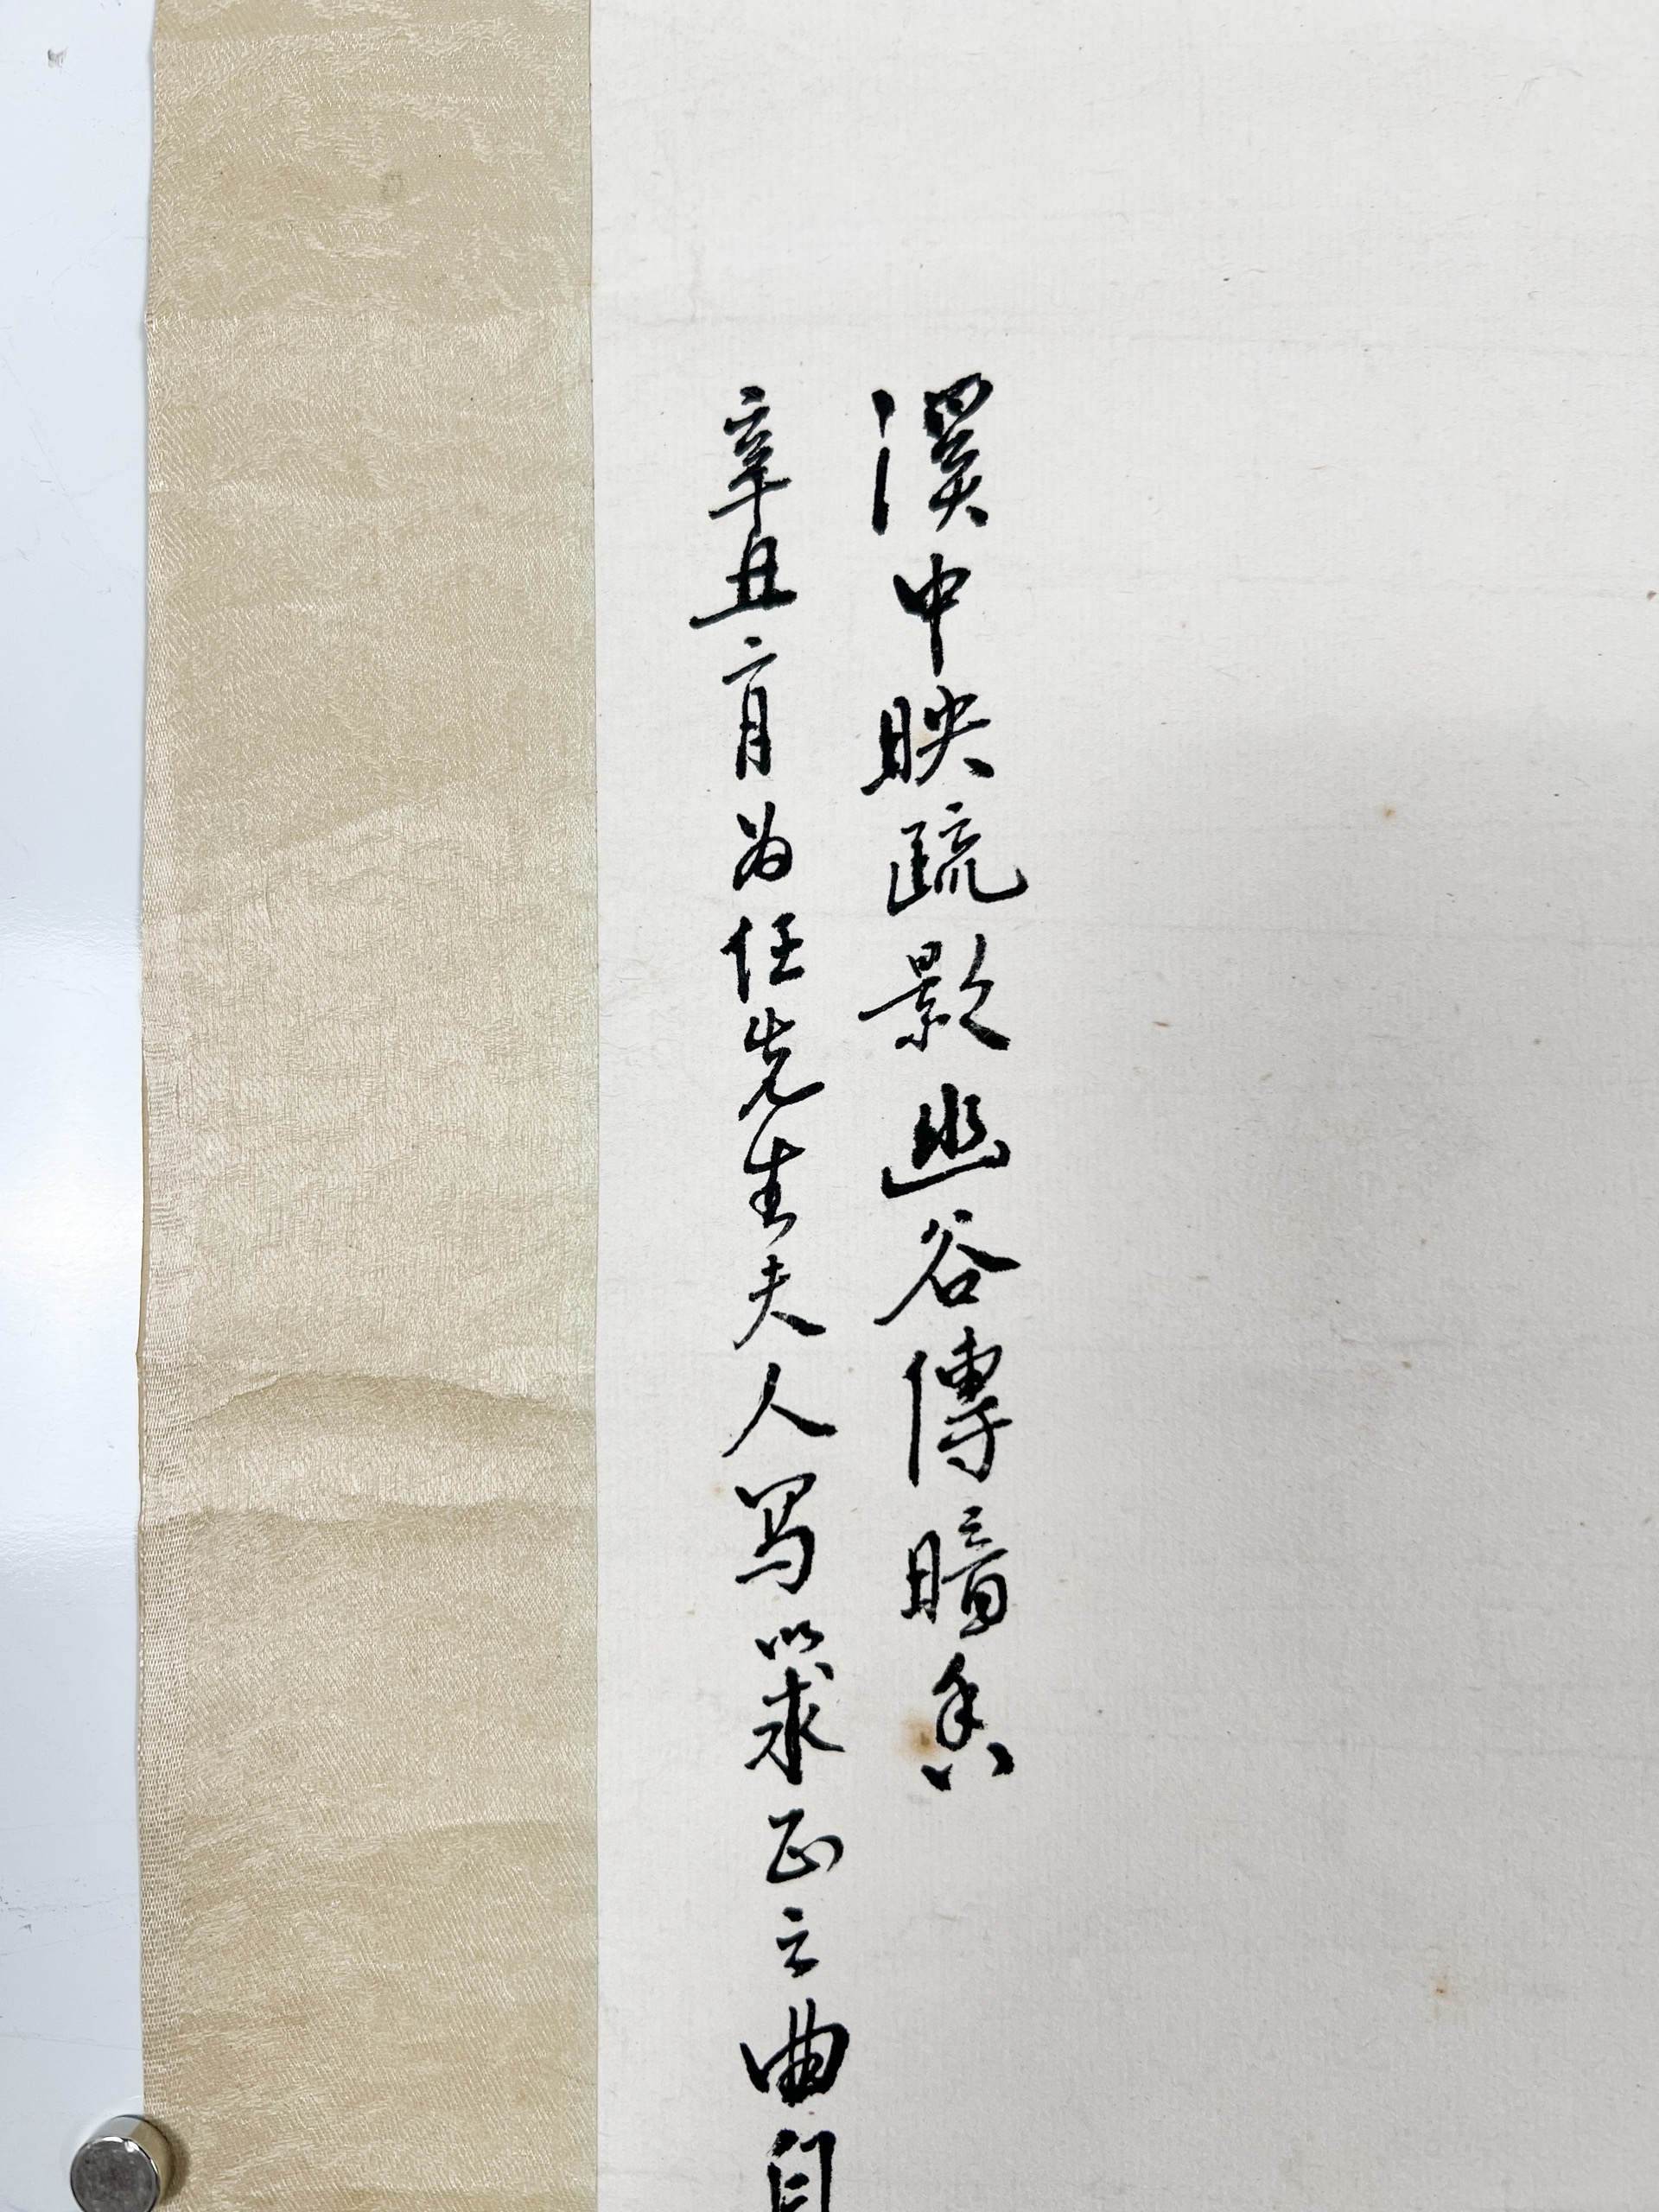 溪中映疏影幽谷傳暗香
辛丑二月为任先生夫人写以求正之曲